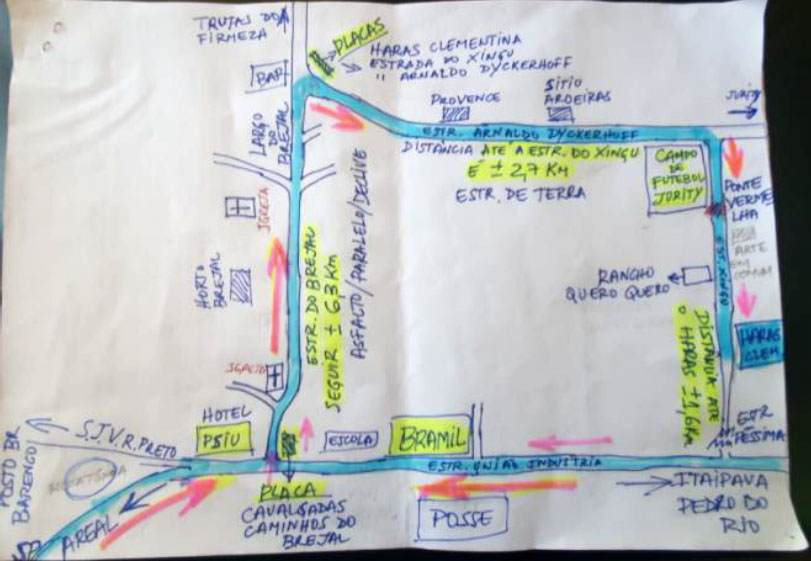 TRUTAS DA
FIRMEZA
PLACAS
HARAS CLEMENTINA
ESTRADA DO XINGU
" ARNALDO DYCKERHOFF
BAR
LARGO
DO
BREJAL
PROVENCE
SÍTIO
AROEIRAS
JURITY
ESTR. ARNALDO DYCKERHOFF
DISTÂNCIA ATÉ A ESTR. DO XINGU
É ± 2,7 KM
ESTR. DE TERRA
CAMPO
DE
FUTEBOL
JURITY
PONTE
VERME
LHA
ARTE
EM
COMUM
EST. XINGU
IGREJA
HORTO
BREJAL
ESTR. DO BREJAL
SEGUIR ± 6,3 KM
ASFALTO/PARALELO/DECLIVE
RANCHO
QUERO QUERO
DISTÂNCIA ATÉ
O HARAS ± 1,6 KM
HARAS
CLEM.
IGREJA
HOTEL
PSIU
ESCOLA
BRAMIL
ESTR
PÉSSIMA
S.J.V.R. PRETO
POSTO BR
BARENCO
AREAL
ESTR. UNIÃO INDUSTRIA
PLACA
CAVALGADAS
CAMINHOS DO
BREJAL
POSSE
ITAIPAVA
PEDRO DO
RIO